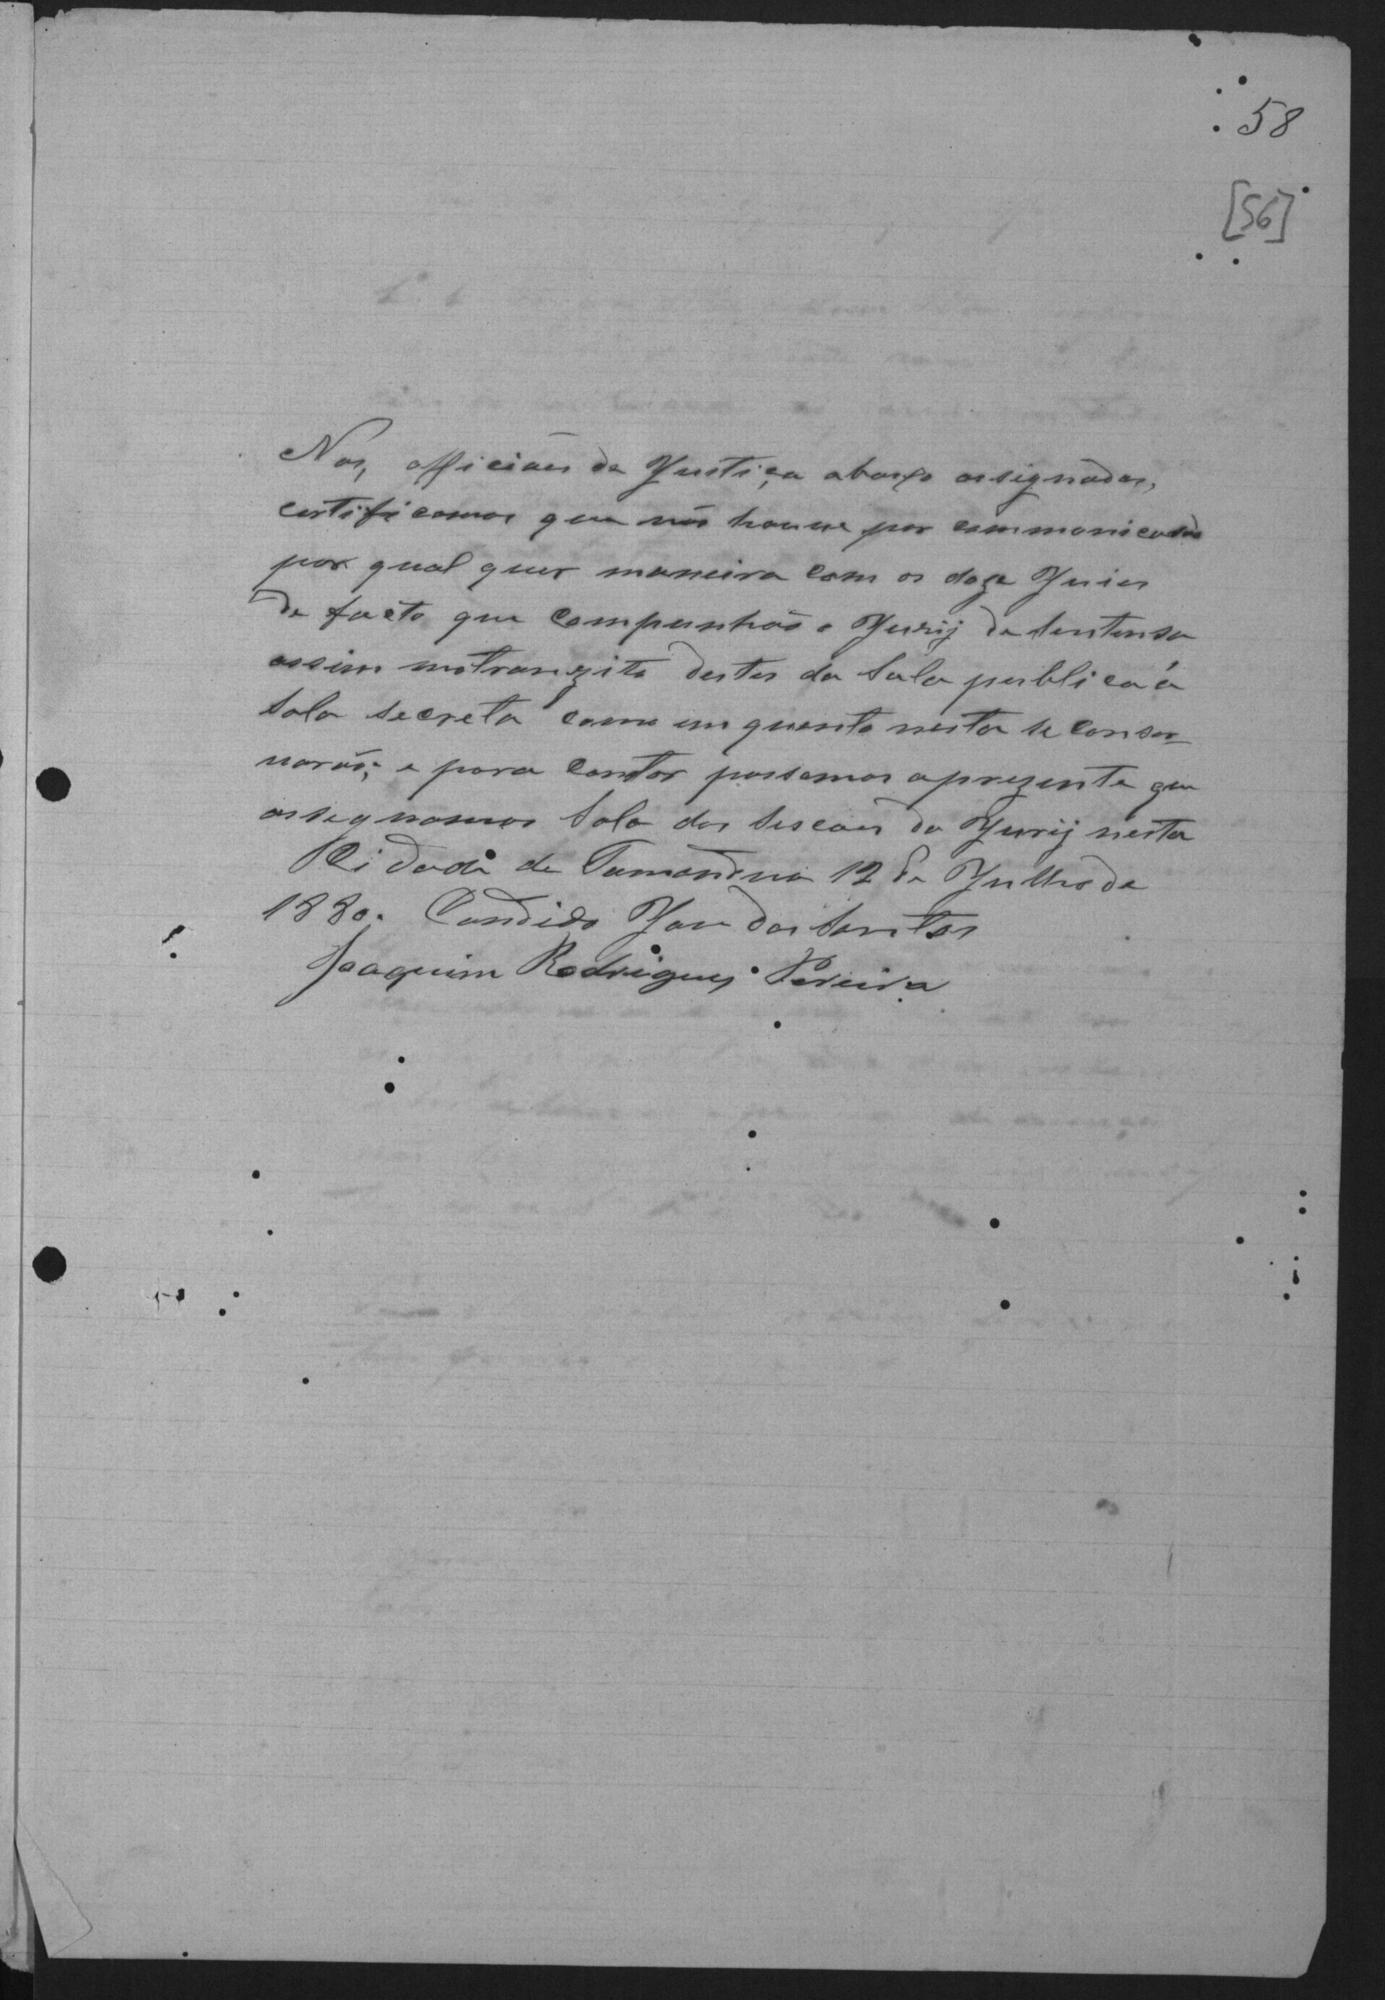 58
[56]
Nos, officiães de Justiça abaixo assignados,
certificamos que não houve por communicasão
por qual quer maneira com os doze Juises
de facto que compunhão o Jurij de sentensa
assim no tranzito destes da sala publica á
sala secreta como em quanto nesta se conser-
varão; e para constar passamos a prezente que
assegnamos Sala das sescoes do Jurij nesta
Cidade de Tamandua 12 de Julho de
1880. Candido Jose dos Santos
Joaquim Rodrigues Pereira